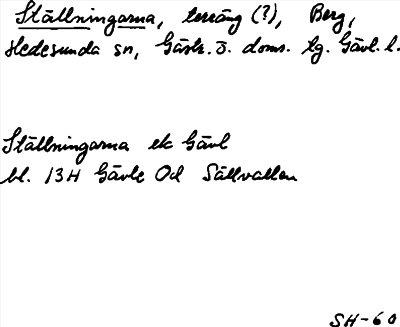 Ställningarna, terräng (?), Berg,
Hedesunda sn, Gästr. ö. doms. tg. Gävl. l.
Ställningarna ek Gävl
bl. 13H Gävle Od Sällvallen
SH-60